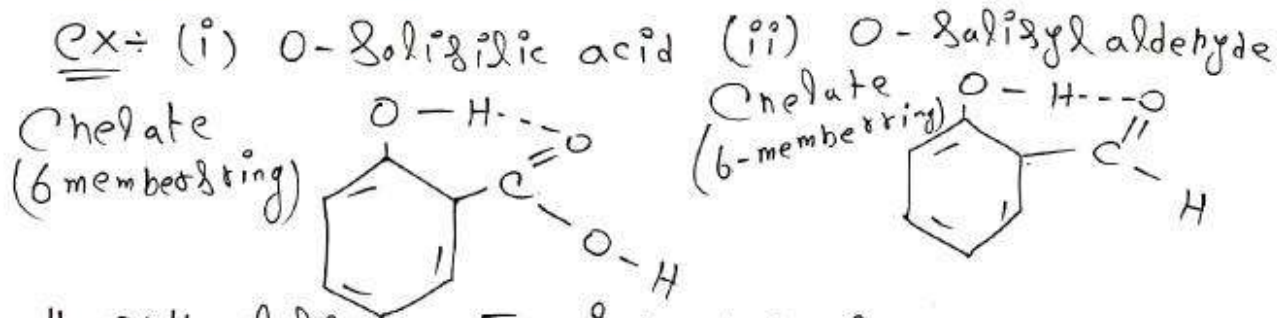 Ex÷ (i) O-Salisilic acid (ii) O-Salisyl aldehyde
Chelate
(6 members ring)
O — H - - - O
C
O - H
Chelate
(6-member ring)
O — H - - - O
C
H